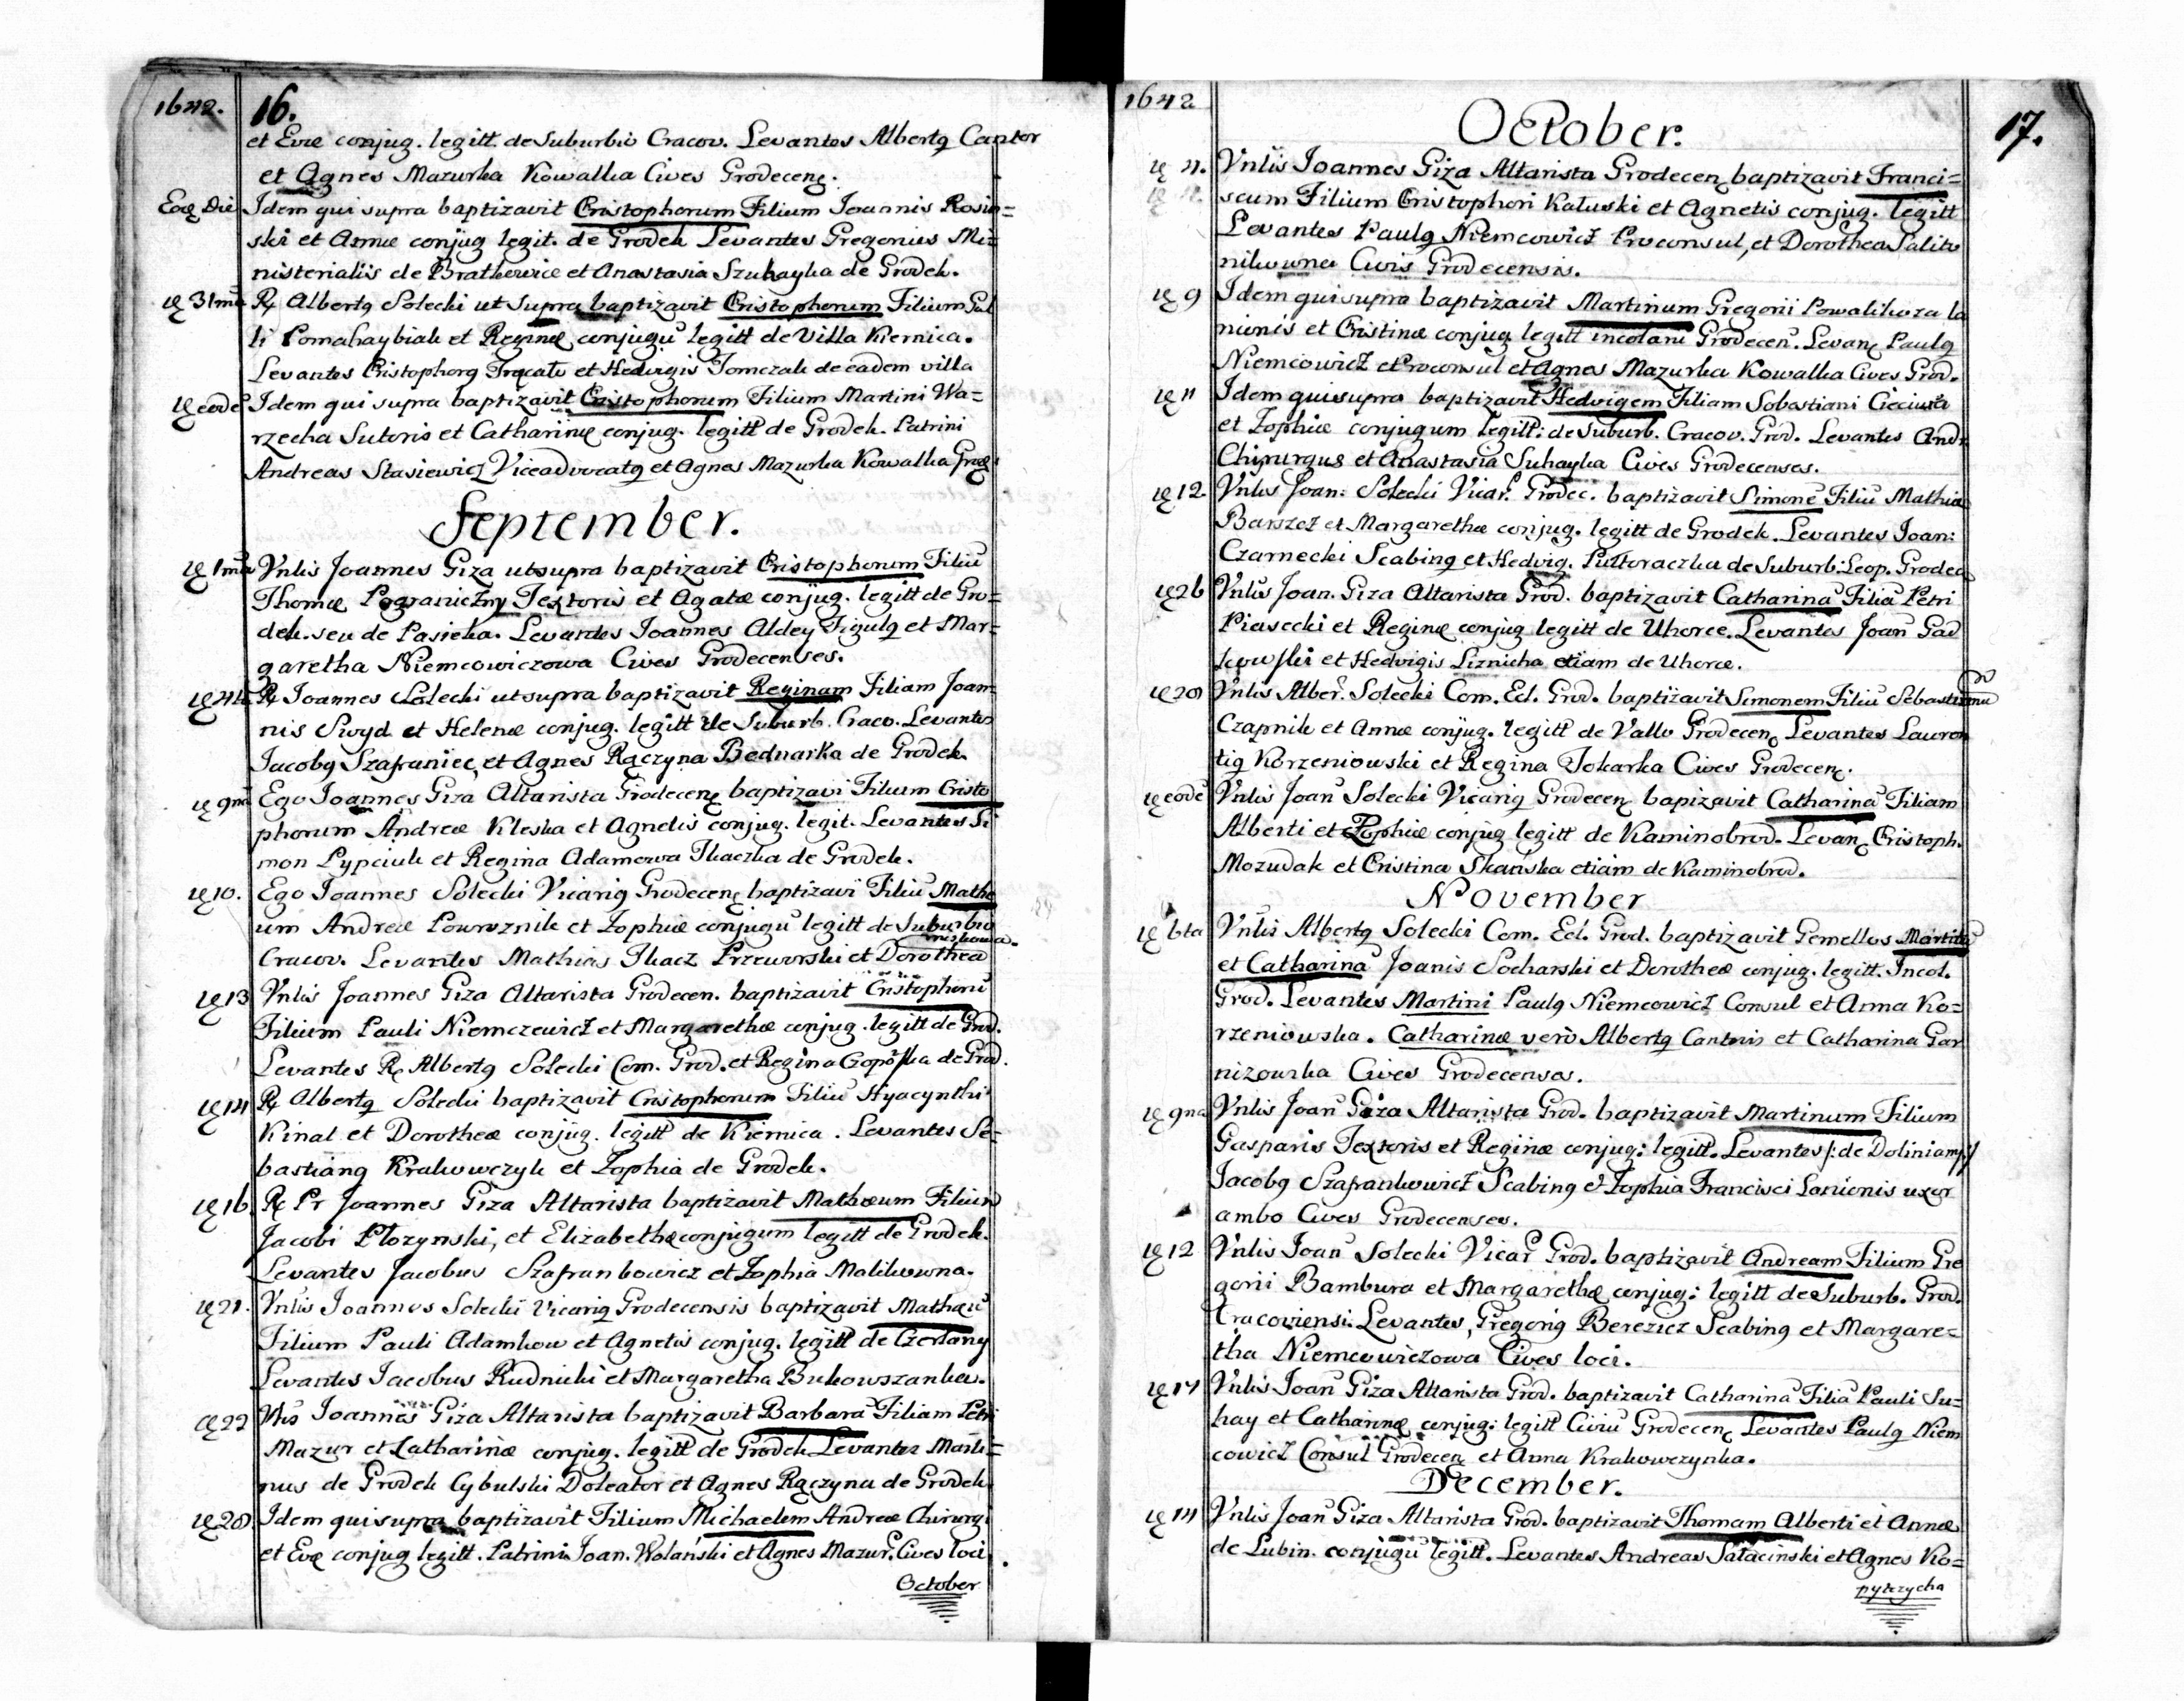 1642. 16.
et Evæ conjug. legitt. de Suburbio Cracov. Levantes Albertq Cantor
et Agnes Mazurka Kowalka Cives Grodeceng.
Eoq Die Idem qui supra baptizavit Cristophorum Filium Joannis Rosin=
ski et Annæ conjug legit. de Grodek Levantes Gregorius Mi=
nisterialis de Bratkowice et Anastasia Szuhayka de Grodek.
31ma R Albertq Solecki ut Supra baptizavit Cristophorum Filium Gal
li Pomahaybiak et Reginę conjugū legitt de Villa Kiernica.
Levantes Cristophorq et Hedvigis Tomczak de eadem villa
eodē Idem qui supra baptizavit Cristophorum Filium Martini Wa=
rzecha Sutoris et Catharinę conjug. legitt de Grodek. Patrini
Andreas Stasiewicz Viceadvocatq et Agnes Mazurka Kowalka Grod
September.
1ma Vnlis Joannes Giza utsupra baptizavit Cristophorum Filiū
Thomæ Pograniczny Textoris et Agatæ conjug. legitt de Gro=
dek. seu de Pasieka. Levantes Joannes Aldey Figulq et Mar=
garetha Niemcowiczowa Cives Grodecenses.
4ta R Joannes Solecki utsupra baptizavit Reginam Filiam Joan=
nis Swyd et Helenæ conjug. legitt de Suburb. Craco. Levantes
Jacobq Szafraniec, et Agnes Rączyna Bednarka de Grodek.
9na Ego Joannes Giza Altarista Grodecenę baptizavi Filium Cristo
phorum Andreæ Kleska et Agnetis conjug. legit. Levantes Si
mon Lypciuk et Regina Adamowa Tkaczka de Grodek.
10. Ego Joannes Solecki Vicariq Grodecenę baptizavi Filiū Mathe
um Andreæ Powroznik et Zophiæ conjugū legitt de Suburbio
Cracov. Levantes Mathias Tkacz Przeworski et Dorothea
13 Vnlis Joannes Giza Altarista Grodecen. baptizavit Cristophorū
Filium Pauli Niemczewicz et Margarethæ conjug. legitt de Grod.
Levantes R Albertq Solecki Com. Grod. et Regina de Grod.
14 R Albertq Solecki baptizavit Cristophorum Filiū Hyacynthi
Kinal et Dorotheæ conjug. legitt de Kiernica. Levantes Se=
bastianq Krakowczyk et Zophia de Grodek.
16. R Pr Joannes Giza Altarista baptizavit Mathæum Filium
Jacobi Ptozynski, et Elizabethæ conjugum legitt de Grodek.
Levantes Jacobus Szafrankowicz et Zophia Malikowna.
21. Vnlis Joannes Solecki Vicariq Grodecensis baptizavit Mathæū
Filium Pauli Adamkow et Agnetis conjug. legitt de Czerlany
Levantes Jacobus Rudnicki et Margaretha Bukowszanka.
22 Joannes Giza Altarista baptizavit Barbarā Filiam Petri
Mazur et Catharinæ conjug. legitt de Grodek Levantes Marti=
nus de Grodek Cybulski Doleator et Agnes Rączyna de Grodek
28. Idem qui supra baptizavit Filium Michaelem Andreæ Chirurgi
et Evæ conjug legitt. Patrini Joan. Wolański et Agnes Mazur. Cives loci.
October
1642 17.
October.
4. Vnlis Joannes Giza Altarista Grodecenę baptizavit Franci=
scum Filium Cristophori Kaluski et Agnetis conjug. legitt
Levantes Paulq Niemcowicz Proconsul, et Dorothea Salitr
nikowna Civis Grodecensis.
9 Idem qui supra baptizavit Martinum Gregorii Powalikoza la
nionis et Cristinæ conjug legitt incolarū Grodecen. Levanę Paulq
Niemcowicz Proconsul et Agnes Mazurka Kowalka Cives Grod.
11 Idem qui supra baptizavit Hedvigem Filiam Sebastiani Cieciura
et Zophiæ conjugum legitt: de Suburb. Cracov. Grod. Levantes And.
Chirurgus et Anastasia Suhayka Cives Grodecenses.
12 Vnlis Joan: Solecki Vicar. Grodec. baptizavit Simonē Filiū Mathiæ
Barszcz et Margarethæ conjug. legitt de Grodek. Levantes Joan:
Czarnecki Scabinq et Hedvig. Puttoraczka de Suburb: Leop. Grodec
26 Vnlis Joan. Giza Altarista Grod. baptizavit Catharinā Filiā Petri
Piasecki et Reginę conjug legitt de Uherce. Levantes Joan Gad
kowski et Hedvigis Liznicha etiam de Uherce.
28 Vnlis Alber. Solecki Com. Ecl. Grod. baptizavit Simonem Filiū Sebastiani
Czapnik et Annæ conjug. legitt de Vallo Grodecenę Levantes Lauren
tiq Korzeniowski et Regina Tokarka Cives Grodecenę.
eodē Vnlis Joan Solecki Vicariq Grodecenę bapizavit Catharinā Filiam
Alberti et Zophiæ conjug legitt de Kaminobrod. Levanę Cristoph.
Mozudak et Cristina Skańska etiam de Kaminobrod.
November
6ta Vnlis Albertq Solecki Com. Ecl. Grod. baptizavit Gemellos Martinū
et Catharinā Joanis Socharski et Dorotheæ conjug. legitt. Incol.
Grod. Levantes Martini Paulq Niemcowicz Consul et Anna Ko=
rzeniowska. Catharinæ verò Albertq Cantoris et Catharina Gar
nizowska Cives Grodecenses.
9na Vnlis Joan Giza Altarista Grod. baptizavit Martinum Filium
Gasparis Textoris et Reginæ conjug: legitt. Levantes /: de Doliniany:/
Jacobq Szafrankowicz Scabinq et Zophia Francisci Lanionis uxor
ambo Cives Grodecenses.
12 Vnlis Joan Solecki Vicar Grod. baptizavit Andream Filium Gre
gorii Bambura et Margarethæ conjug: legitt de Suburb. Grod.
Cracoviensi: Levantes, Gregoriq Berezicz Scabinq et Margare=
tha Niemcowiczowa Cives loci.
17 Vnlis Joan Giza Altarista Grod. baptizavit Catharinā Filiā Pauli Su=
hay et Catharinę conjug: legitt Civiū Grodecenę Levantes Paulq Niem
cowicz Consul Grodecenę et Anna Krakowczynka.
December.
14 Vnlis Joan Giza Altarista Grod. baptizavit Thomam Alberti et Annæ
de Lubin. conjugū legitt. Levantes Andreas Salacinski et Agnes Ko=
pytczycha